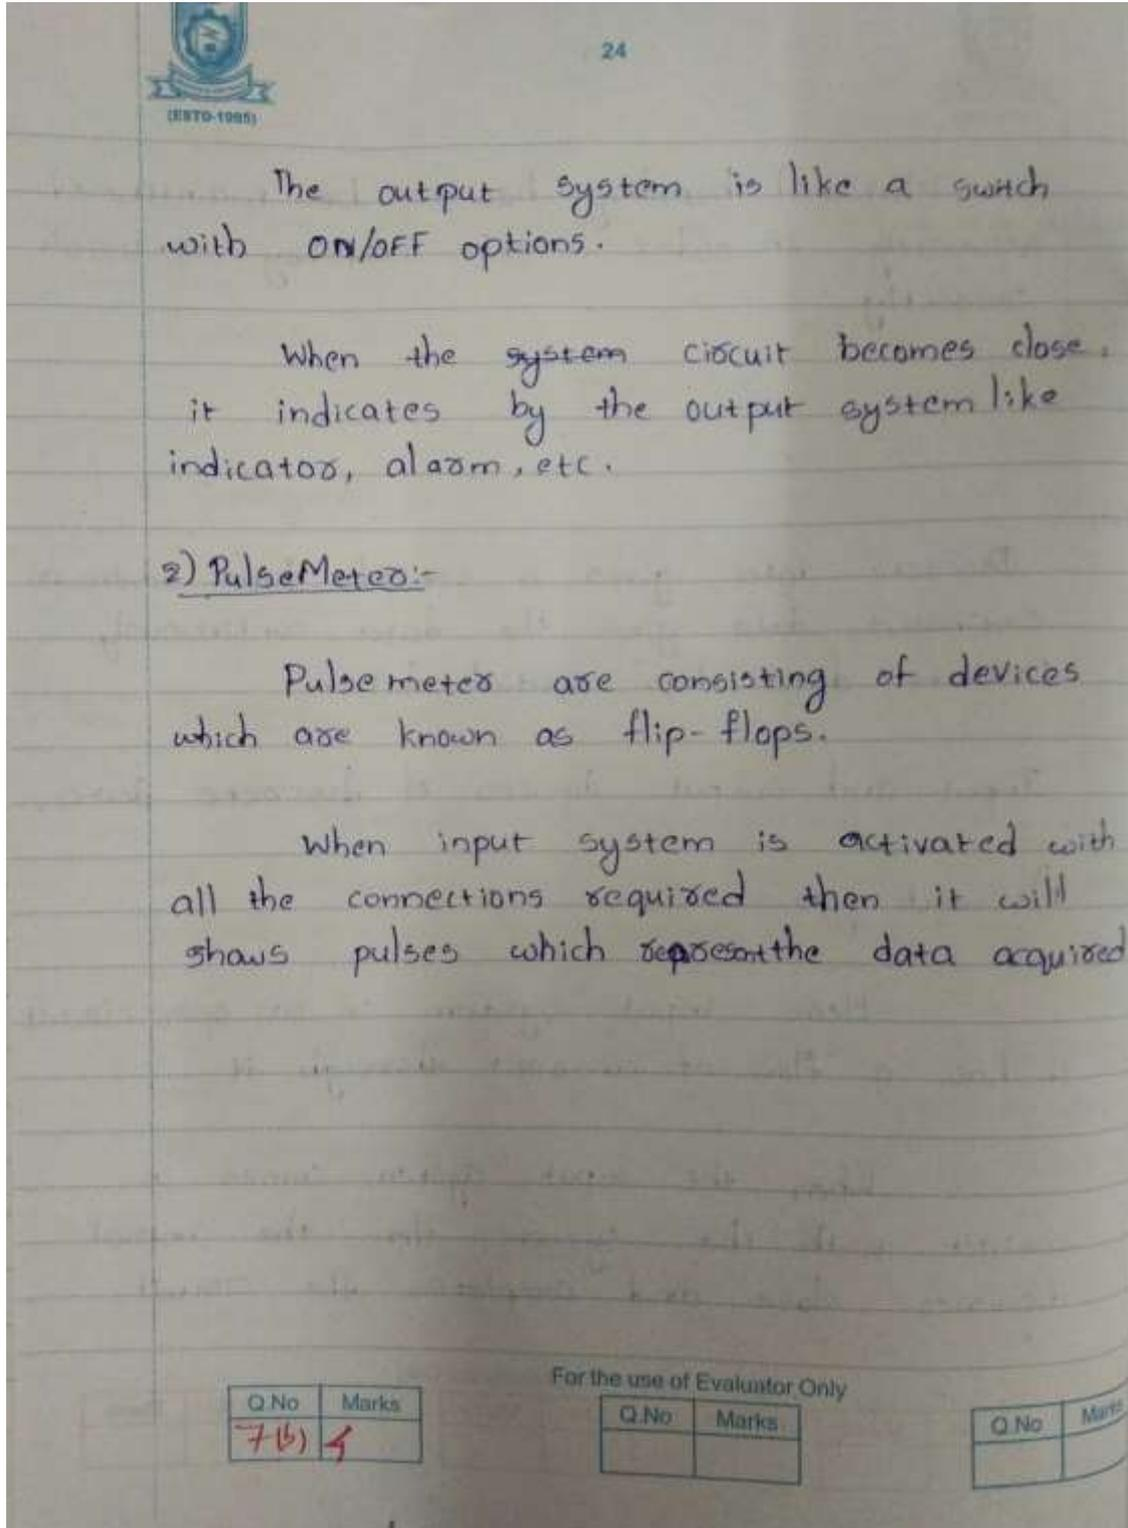 24
(ESTD-1995)
The output system is like a switch
with ON/OFF options.
When the system circuit becomes close.
it indicates by the output system like
indicator, alarm, etc.
2) PulseMeter:-
Pulse meter are consisting of devices
which are known as flip-flops.
When input system is activated with
all the connections required then it will
shows pulses which represent the data acquired
For the use of Evaluator Only
Q.No Marks
7(b) 4
Q.No Marks
Q.No Marks